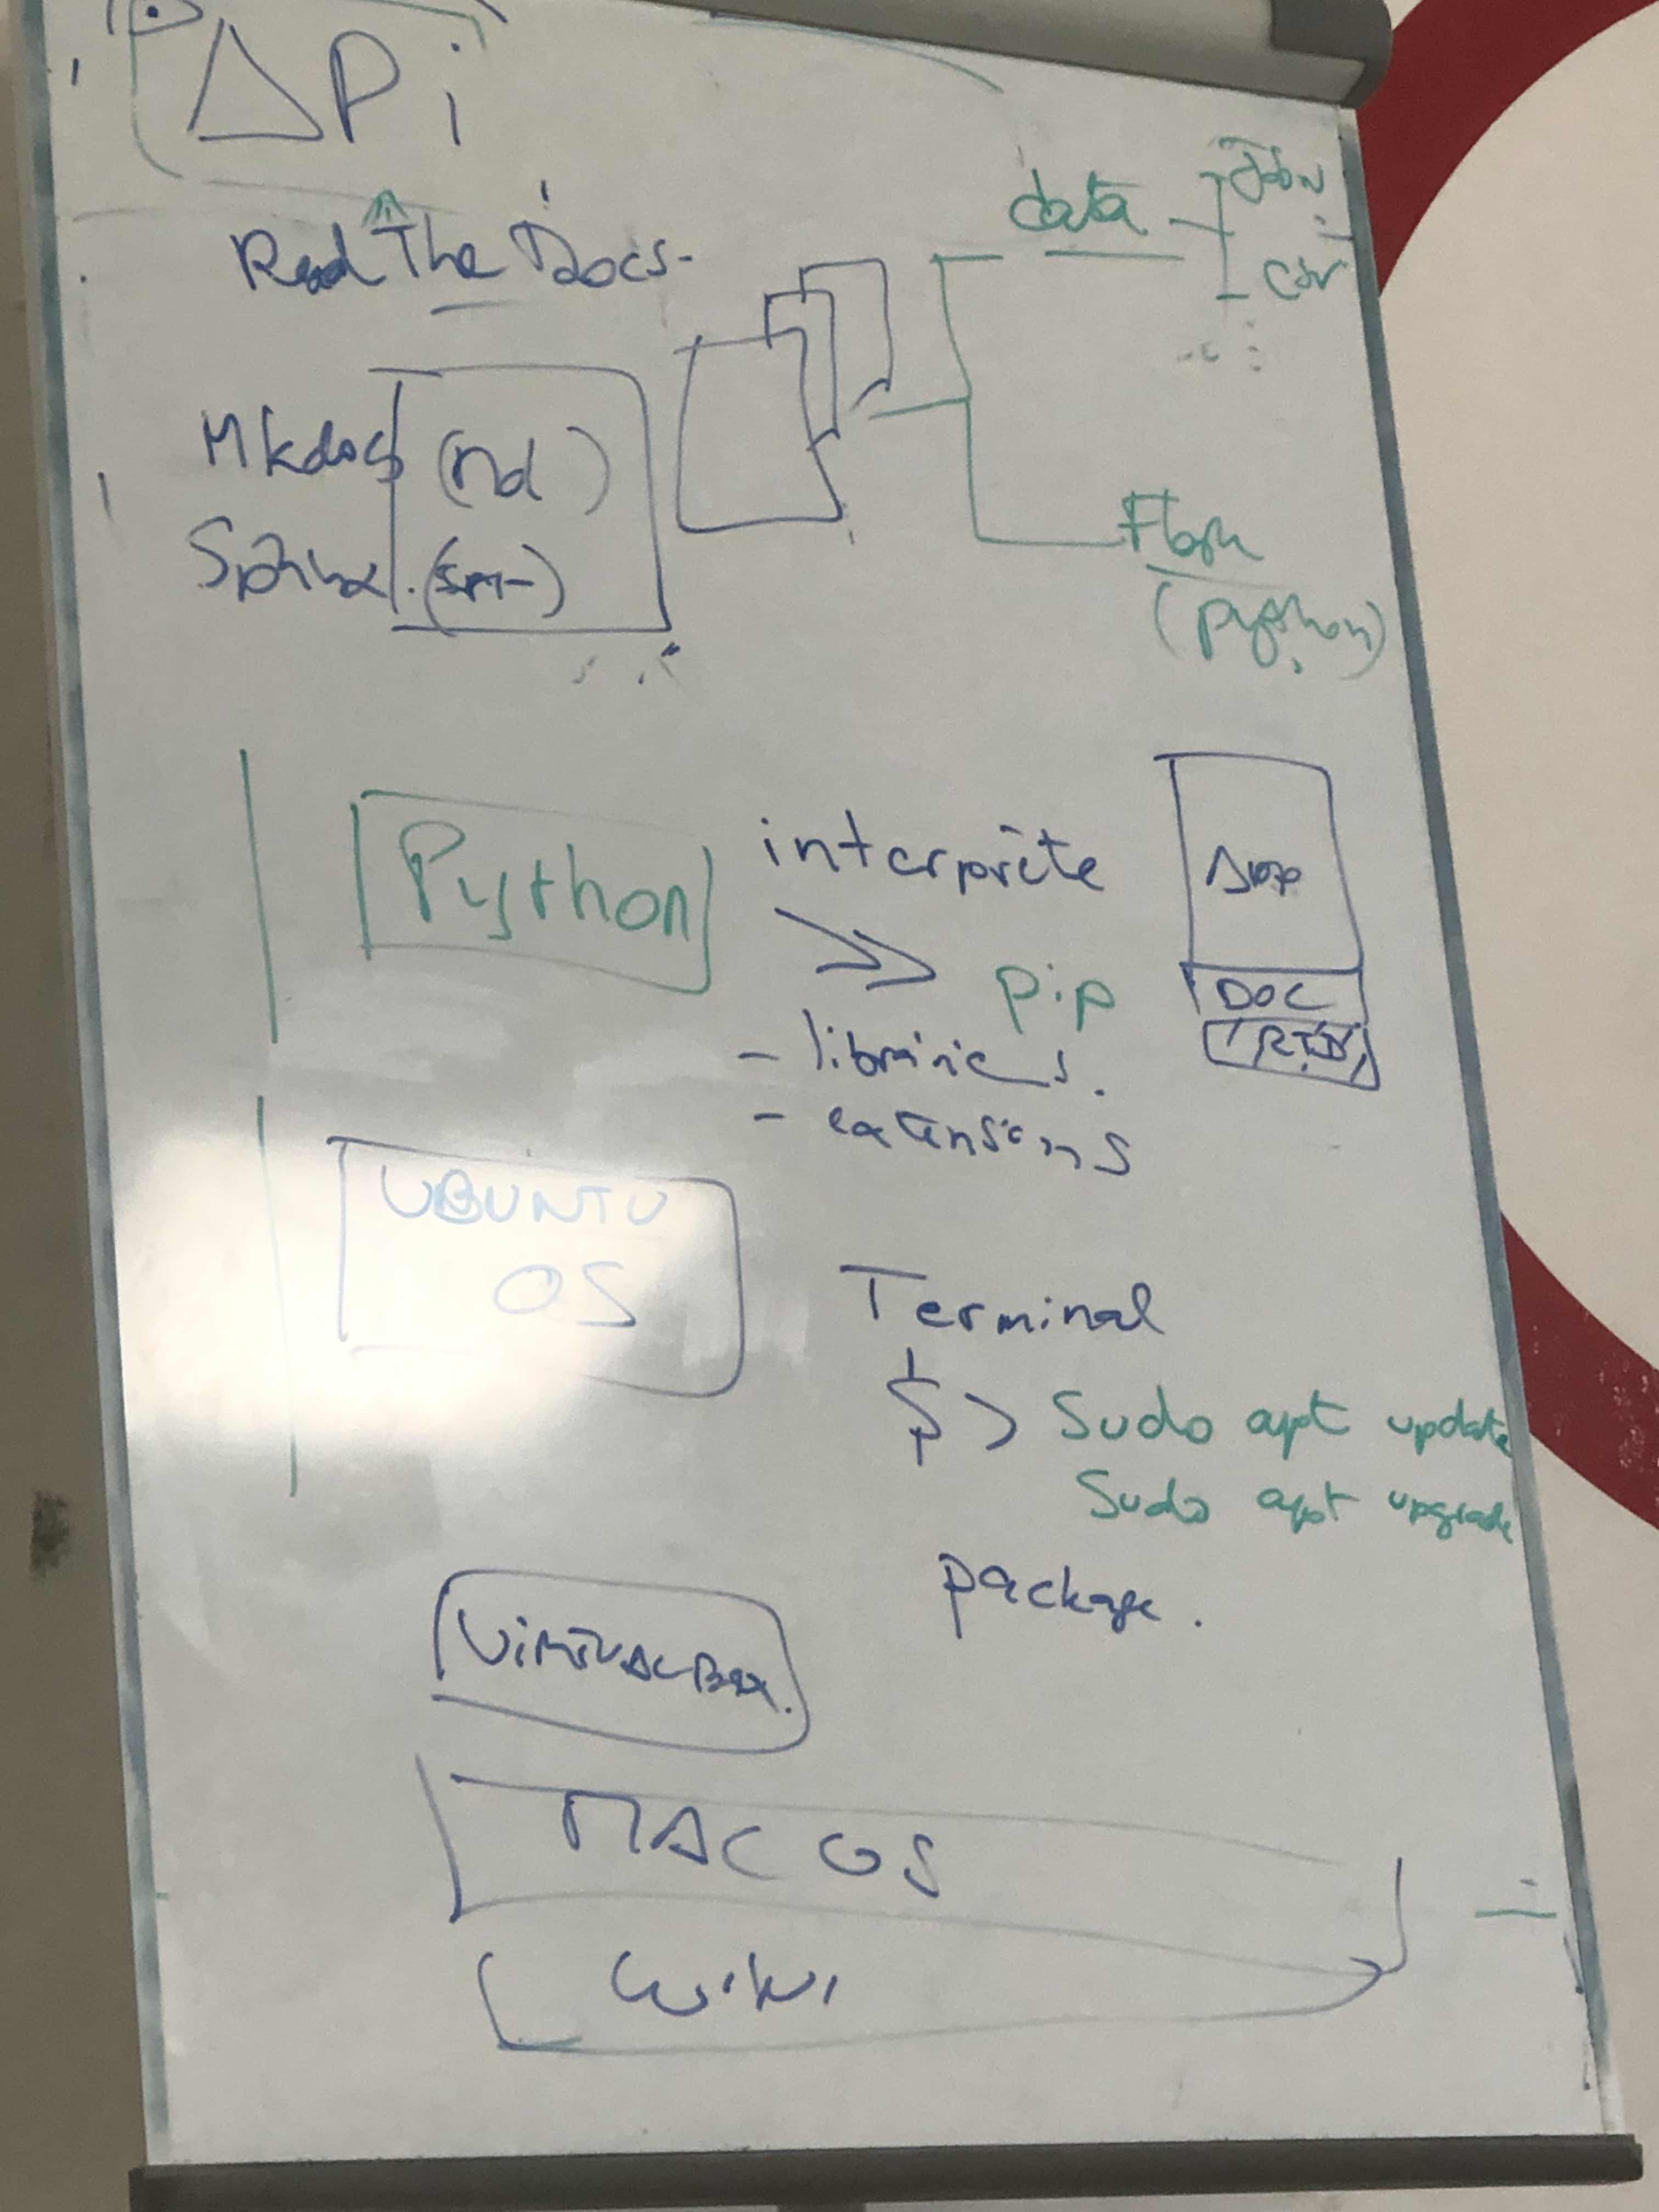 API
Read The Docs.
data
Json
csv
Mkdocs (md)
Sphinx
Flask
(python)
Python
interprète
pip
- librairies.
- extensions
App
DOC
RTD
UBUNTU
OS
Terminal
$> Sudo apt update
Sudo apt upgrade
package.
VIRTUALBOX.
MAC OS